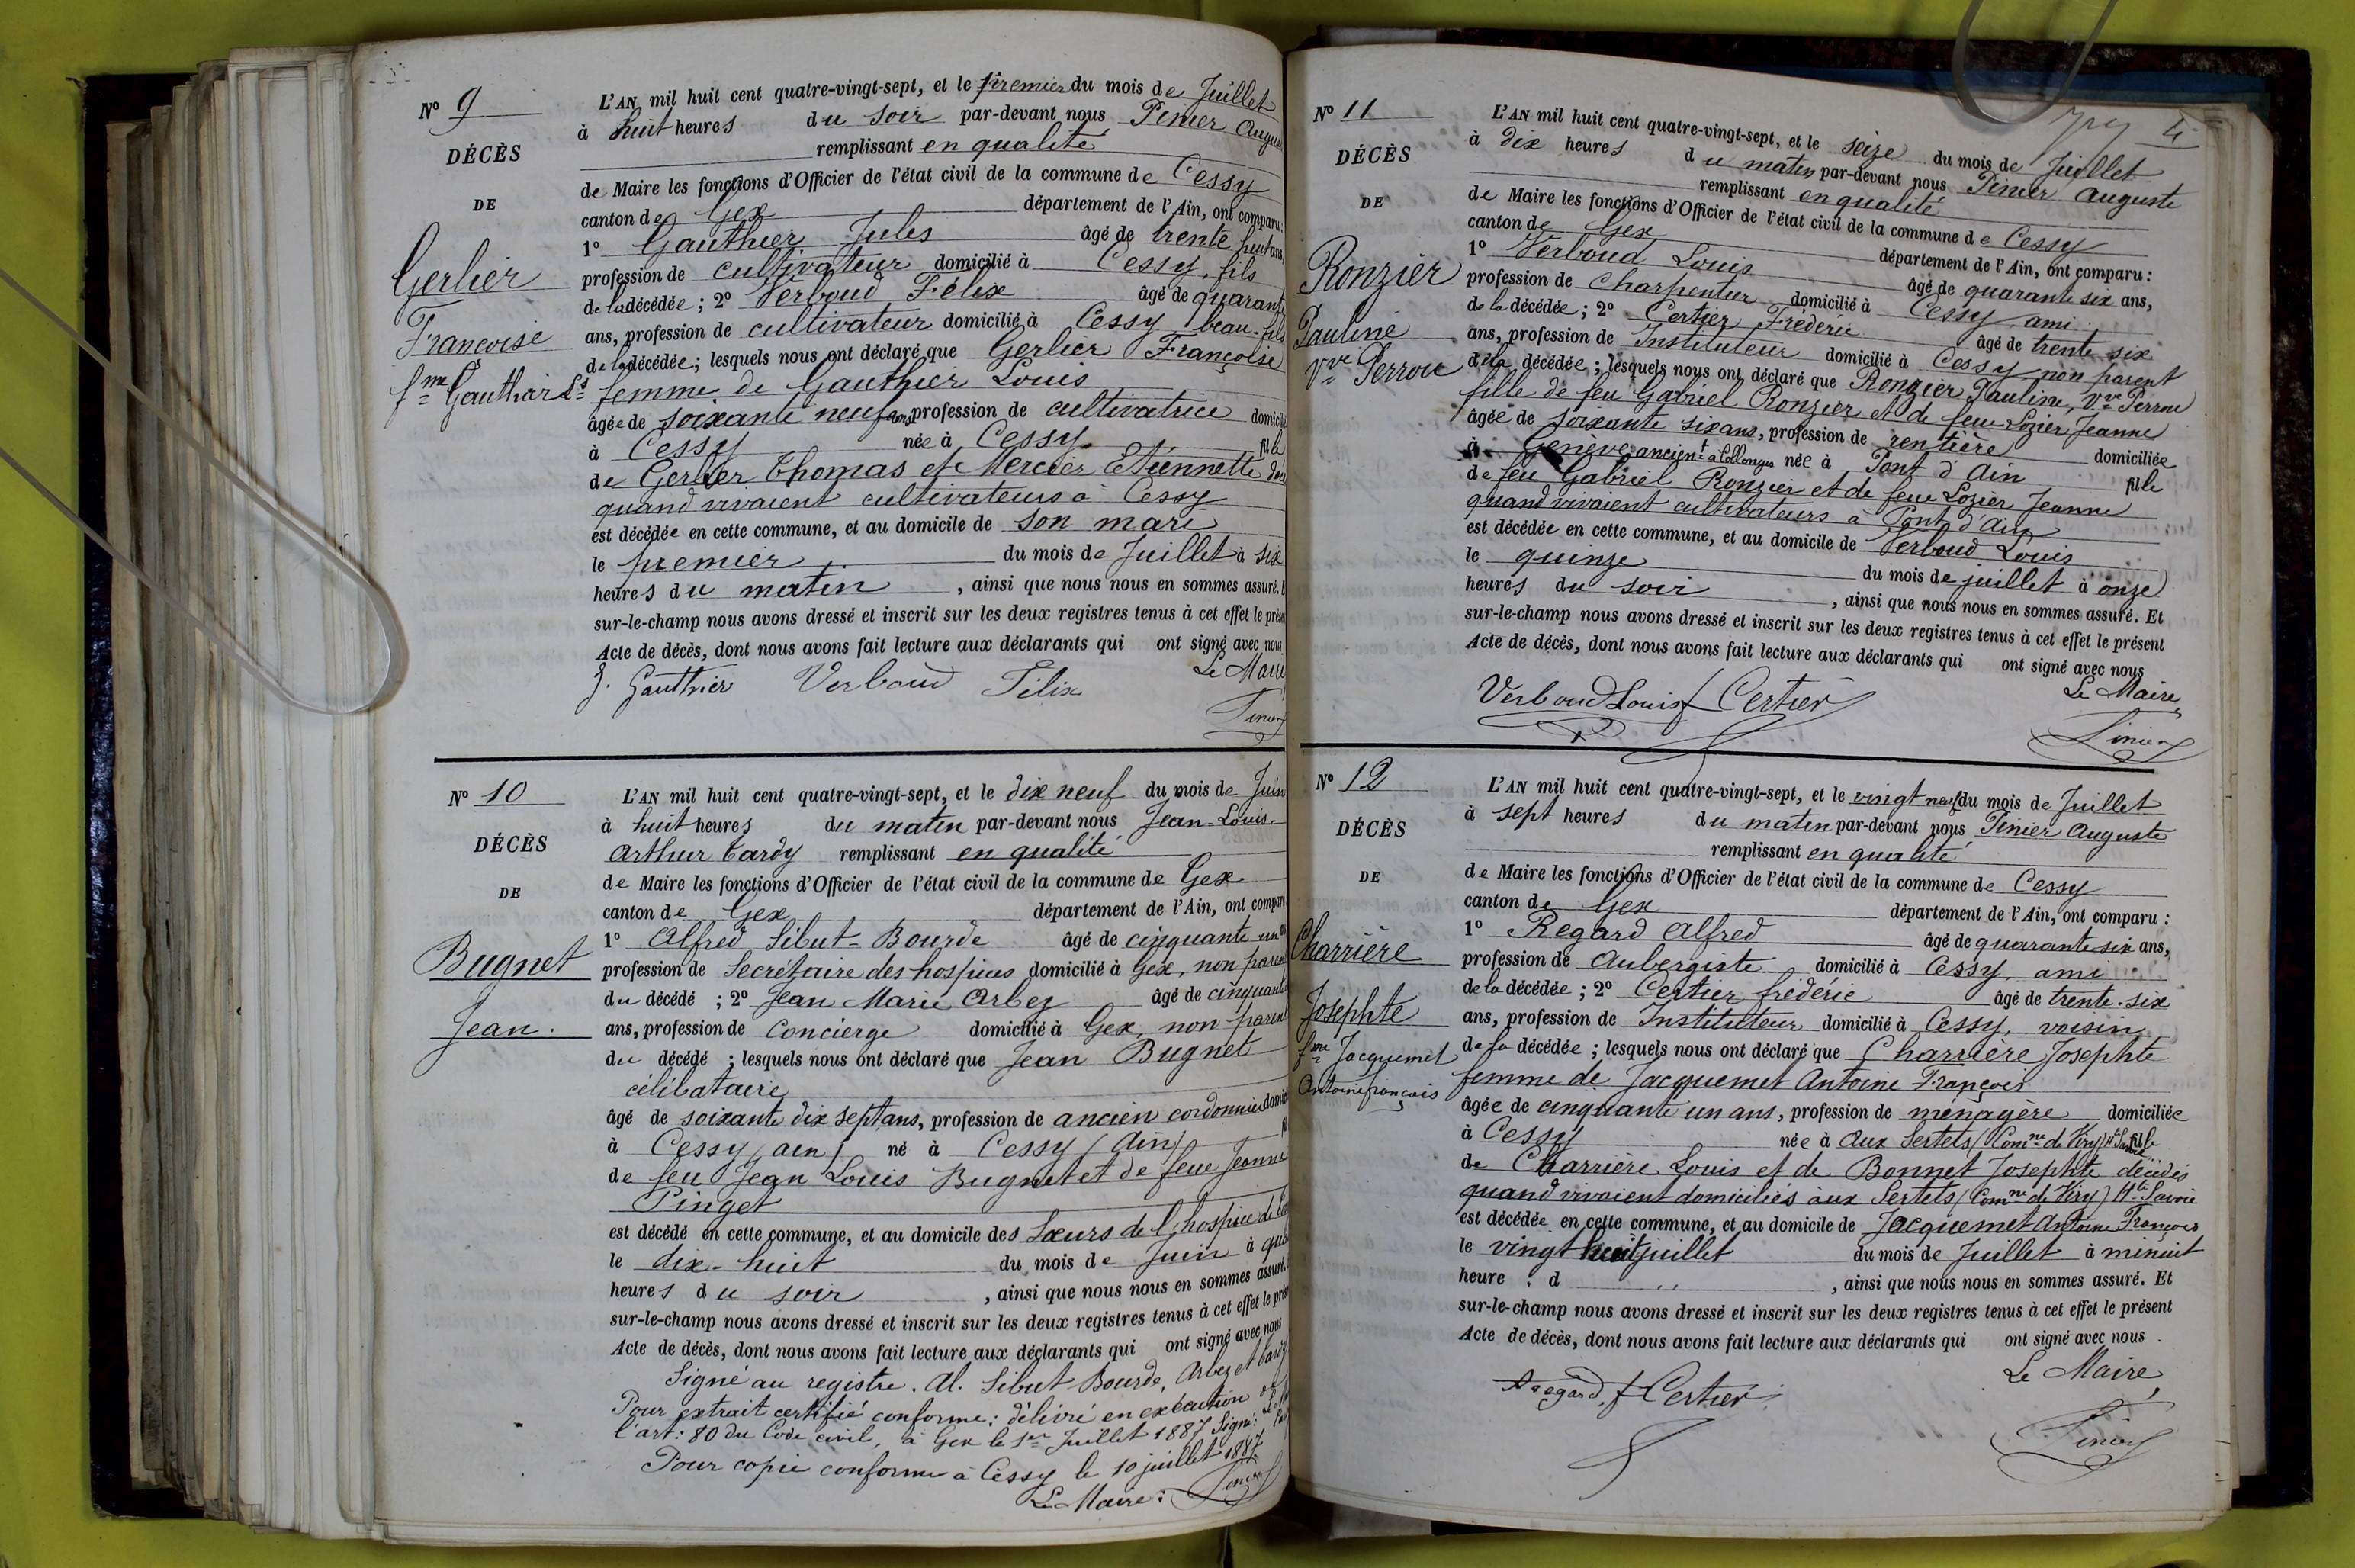 N° 9
DÉCÈS
DE
Gerlier
Françoise
fme Gauthier Ls
L'AN mil huit cent quatre-vingt-sept, et le premier du mois de Juillet
à huit heures du soir par-devant nous Pinier Augus
remplissant en qualité
de Maire les fonctions d'Officier de l'état civil de la commune de Cessy
canton de Gex département de l'Ain, ont comparu:
1° Gauthier Jules âgé de trente huit ans,
profession de cultivateur domicilié à Cessy, fils
de la décédée ; 2° Verboud Félix âgé de quarante
ans, profession de cultivateur domicilié à Cessy beau-fils
de la décédée ; lesquels nous ont déclaré que Gerlier Françoise
femme de Gauthier Louis
âgée de soixante neuf ans, profession de cultivatrice domicilié
à Cessy née à Cessy fille
de Gerlier Thomas et Mercier Etiennette
quand vivaient cultivateurs à Cessy
est décédée en cette commune, et au domicile de son mari
le premier du mois de Juillet à six
heures du matin , ainsi que nous nous en sommes assuré. E
sur-le-champ nous avons dressé et inscrit sur les deux registres tenus à cet effet le présen
Acte de décès, dont nous avons fait lecture aux déclarants qui ont signé avec nous
J. Gauthier Verboud Félix Le Maire
Pinier
N° 10
DÉCÈS
DE
Bugnet
Jean.
L'AN mil huit cent quatre-vingt-sept, et le dix neuf du mois de Juin
à huit heures du matin par-devant nous Jean-Louis-
Arthur Tardy remplissant en qualité
de Maire les fonctions d'Officier de l'état civil de la commune de Gex
canton de Gex département de l'Ain, ont compar
1° Alfred Sibut-Bourde âgé de cinquante un
profession de Secrétaire des hospices domicilié à Gex, non paren
du décédé ; 2° Jean Marie Arbez âgé de cinquante
ans, profession de Concierge domicilié à Gex, non paren
du décédé ; lesquels nous ont déclaré que Jean Bugnet
célibataire
âgé de soixante dix sept ans, profession de ancien cordonnier domici
à Cessy (ain) né à Cessy (Ain) fi
de feu Jean Louis Bugnet et de feue Jeanne
Pinget
est décédé en cette commune, et au domicile des Sœurs de l'hospice de
le dix-huit du mois de Juin à qua
heures du soir , ainsi que nous nous en sommes assuré.
sur-le-champ nous avons dressé et inscrit sur les deux registres tenus à cet effet le prés
Acte de décès, dont nous avons fait lecture aux déclarants qui ont signé avec nous
Signé au registre. Al. Sibut Bourde, Arbez et Tardy
Pour extrait certifié conforme; délivré en exécution de
l'art: 80 du Code civil, à Gex le 1er Juillet 1887 Signé:
Pour copie conforme à Cessy le 10 juillet 1887
Le Maire: Pinier
4
N° 11
DÉCÈS
DE
Ronzier
Pauline
Vve Perrou
L'AN mil huit cent quatre-vingt-sept, et le seize du mois de Juillet
à dix heures du matin par-devant nous Pinier Auguste
remplissant en qualité
de Maire les fonctions d'Officier de l'état civil de la commune de Cessy
canton de Gex département de l'Ain, ont comparu :
1° Verboud Louis âgé de quarante six ans,
profession de Charpentier domicilié à Cessy ami
de la décédée ; 2° Certier Fréderic âgé de trente six
ans, profession de Instituteur domicilié à Cessy non parent
de la décédée ; lesquels nous ont déclaré que Ronzier Pauline, Vve Perrou
fille de feu Gabriel Ronzier et de feue Lozier Jeanne
âgée de soixante six ans, profession de rentière domiciliée
à Genève ancient à Collonges née à Pont d'Ain fille
de feu Gabriel Ronzier et de feue Lozier Jeanne
quand vivaient cultivateurs à Pont d'Ain
est décédée en cette commune, et au domicile de Verboud Louis
le quinze du mois de juillet à onze
heures du soir , ainsi que nous nous en sommes assuré. Et
sur-le-champ nous avons dressé et inscrit sur les deux registres tenus à cet effet le présent
Acte de décès, dont nous avons fait lecture aux déclarants qui ont signé avec nous
Verboud Louis Certier Le Maire,
Pinier
N° 12
DÉCÈS
DE
Charrière
Josephte
fme Jacquemet
Antoine françois
L'AN mil huit cent quatre-vingt-sept, et le vingt neuf du mois de Juillet
à sept heures du matin par-devant nous Pinier Auguste
remplissant en qualité
de Maire les fonctions d'Officier de l'état civil de la commune de Cessy
canton de Gex département de l'Ain, ont comparu :
1° Regard Alfred âgé de quarante six ans,
profession de Aubergiste domicilié à Cessy, ami
de la décédée ; 2° Certier frédéric âgé de trente-six
ans, profession de Instituteur domicilié à Cessy, voisin
de la décédée ; lesquels nous ont déclaré que Charrière Josephte
femme de Jacquemet Antoine François
âgée de cinquante un ans, profession de ménagère domiciliée
à Cessy née à aux Sertets (Comne de Viry) Hte Savoie fille
de Charrière Louis et de Bonnet Josephte décédés
quand vivaient domiciliés aux Sertets (Comne de Viry) Hte Savoie
est décédée en cette commune, et au domicile de Jacquemet Antoine François
le vingt huit juillet du mois de Juillet à minuit
heure : d ,, , ainsi que nous nous en sommes assuré. Et
sur-le-champ nous avons dressé et inscrit sur les deux registres tenus à cet effet le présent
Acte de décès, dont nous avons fait lecture aux déclarants qui ont signé avec nous .
Aregard, Certier Le Maire,
Pinier